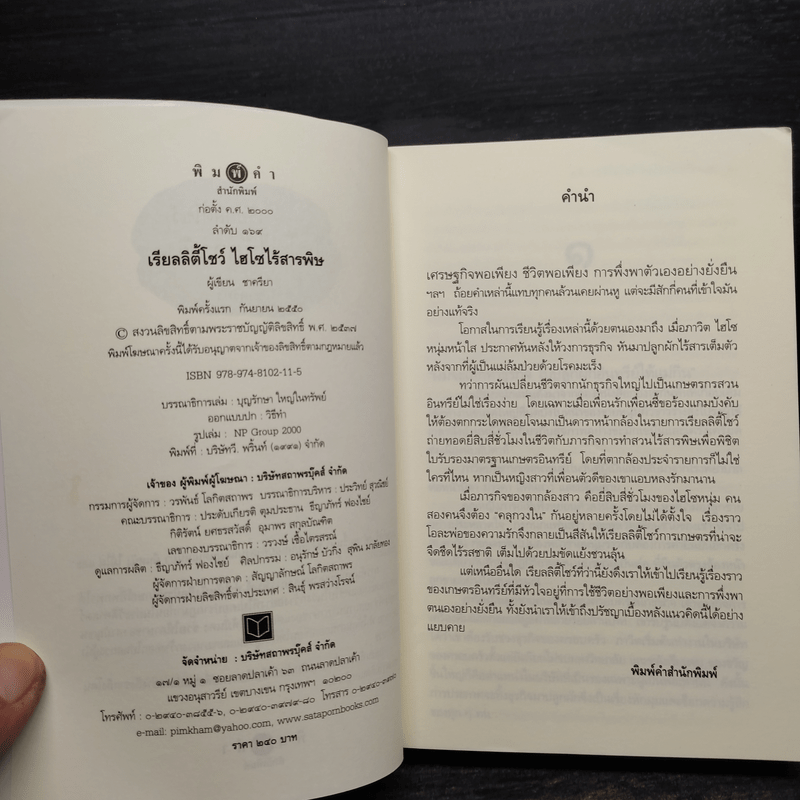 พิมพ์คำ
สำนักพิมพ์
ก่อตั้ง ค.ศ. ๒๐๐๐
ลำดับ ๑๖๙
เรียลลิตี้โชว์ ไฮโซไร้สารพิษ
ผู้เขียน ชาครียา
พิมพ์ครั้งแรก กันยายน ๒๕๕๐
© สงวนลิขสิทธิ์ตามพระราชบัญญัติลิขสิทธิ์ พ.ศ. ๒๕๓๗
พิมพ์โฆษณาครั้งนี้ได้รับอนุญาตจากเจ้าของลิขสิทธิ์ตามกฎหมายแล้ว
ISBN 978-974-8102-11-5
บรรณาธิการเล่ม : บุญรักษา ใหญ่ในทรัพย์
ออกแบบปก : วิธีทำ
รูปเล่ม : NP Group 2000
พิมพ์ที่ : บริษัทวี. พริ้นท์ (๑๙๙๑) จำกัด
เจ้าของ ผู้พิมพ์ผู้โฆษณา : บริษัทสถาพรบุ๊คส์ จำกัด
กรรมการผู้จัดการ : วรพันธ์ โลกิตสถาพร บรรณาธิการบริหาร : ประวิทย์ สุวณิชย์
คณะบรรณาธิการ : ประดับเกียรติ ตุมประธาน ธีญาภัทร์ ฟองไชย์
กิติรัตน์ ยศขรสวัสดิ์ อุมาพร สกุลบัณฑิต
เลขากองบรรณาธิการ : วรวงษ์ เชื้อไตรสรณ์
ดูแลการผลิต : ธีญาภัทร์ ฟองไชย์ ศิลปกรรม : อนุรักษ์ บัวกิ่ง สุพิน มาลัยทอง
ผู้จัดการฝ่ายการตลาด : สัญญาลักษณ์ โลกิตสถาพร
ผู้จัดการฝ่ายลิขสิทธิ์ต่างประเทศ : สินธุ์ พรสว่างโรจน์
จัดจำหน่าย : บริษัทสถาพรบุ๊คส์ จำกัด
๑๗/๑ หมู่ ๑ ซอยลาดปลาเค้า ๖๓ ถนนลาดปลาเค้า
แขวงอนุสาวรีย์ เขตบางเขน กรุงเทพฯ ๑๐๒๐๐
โทรศัพท์ : ๐-๒๙๔๐-๓๘๕๕-๖, ๐-๒๙๔๐-๓๙๗๙-๘๐ โทรสาร ๐-๒๙๔๐-
e-mail: pimkham@yahoo.com, www.satapornbooks.com
ราคา ๒๔๐ บาท
คำนำ
เศรษฐกิจพอเพียง ชีวิตพอเพียง การพึ่งพาตัวเองอย่างยั่งยืน
ฯลฯ ถ้อยคำเหล่านี้แทบทุกคนล้วนเคยผ่านหู แต่จะมีสักกี่คนที่เข้าใจมัน
อย่างแท้จริง
โอกาสในการเรียนรู้เรื่องเหล่านี้ด้วยตนเองมาถึง เมื่อภาวิต ไฮโซ
หนุ่มหน้าใส ประกาศหันหลังให้วงการธุรกิจ หันมาปลูกผักไร้สารเต็มตัว
หลังจากที่ผู้เป็นแม่ล้มป่วยด้วยโรคมะเร็ง
ทว่าการผันเปลี่ยนชีวิตจากนักธุรกิจใหญ่ไปเป็นเกษตรกรสวน
อินทรีย์ไม่ใช่เรื่องง่าย โดยเฉพาะเมื่อเพื่อนรักเพื่อนซี้ขอร้องแกมบังคับ
ให้ต้องตกกระไดพลอยโจนมาเป็นดาราหน้ากล้องในรายการเรียลลิตี้โชว์
ถ่ายทอดยี่สิบสี่ชั่วโมงในชีวิตกับภารกิจการทำสวนไร้สารพิษเพื่อพิชิต
ใบรับรองมาตรฐานเกษตรอินทรีย์ โดยที่ตากล้องประจำรายการก็ไม่ใช่
ใครที่ไหน หากเป็นหญิงสาวที่เพื่อนตัวดีของเขาแอบหลงรักมานาน
เมื่อภารกิจของตากล้องสาว คือยี่สิบสี่ชั่วโมงของไฮโซหนุ่ม คน
สองคนจึงต้อง “คลุกวงใน” กันอยู่หลายครั้งโดยไม่ได้ตั้งใจ เรื่องราว
โอละพ่อของความรักจึงกลายเป็นสีสันให้เรียลลิตี้โชว์การเกษตรที่น่าจะ
จืดชืดไร้รสชาติ เต็มไปด้วยปมขัดแย้งชวนลุ้น
แต่เหนืออื่นใด เรียลลิตี้โชว์ที่ว่านี้ยังดึงเราให้เข้าไปเรียนรู้เรื่องราว
ของเกษตรอินทรีย์ที่มีหัวใจอยู่ที่การใช้ชีวิตอย่างพอเพียงและการพึ่งพา
ตนเองอย่างยั่งยืน ทั้งยังนำเราให้เข้าถึงปรัชญาเบื้องหลังแนวคิดนี้ได้อย่าง
แยบคาย
พิมพ์คำสำนักพิมพ์